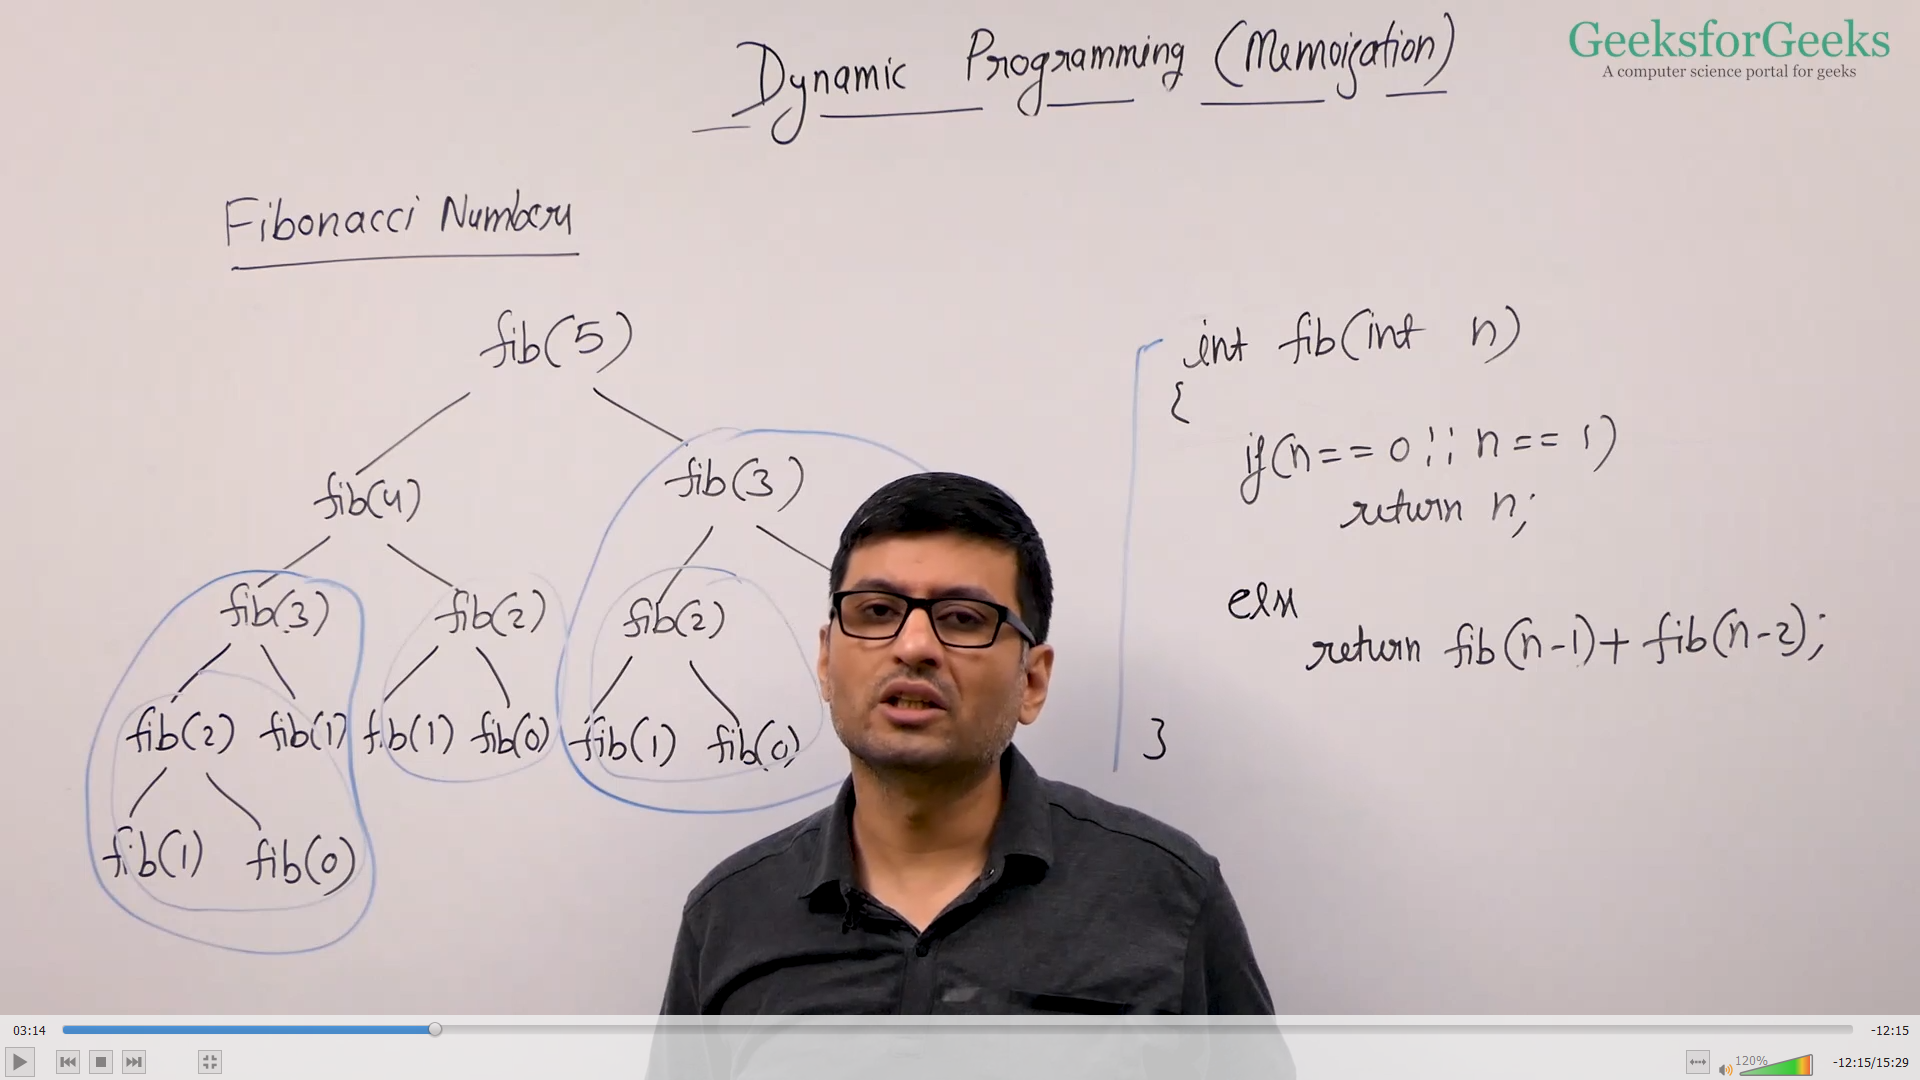 Dynamic Programming (Memoization)
GeeksforGeeks
A computer science portal for geeks
Fibonacci Numbers
fib(5)
fib(4) fib(3)
fib(3) fib(2) fib(2)
fib(2) fib(1) fib(1) fib(0) fib(1) fib(0)
fib(1) fib(0)
int fib(int n)
{
if(n==0 || n==1)
return n;
else
return fib(n-1)+fib(n-2);
}
03:14
-12:15
120%
-12:15/15:29